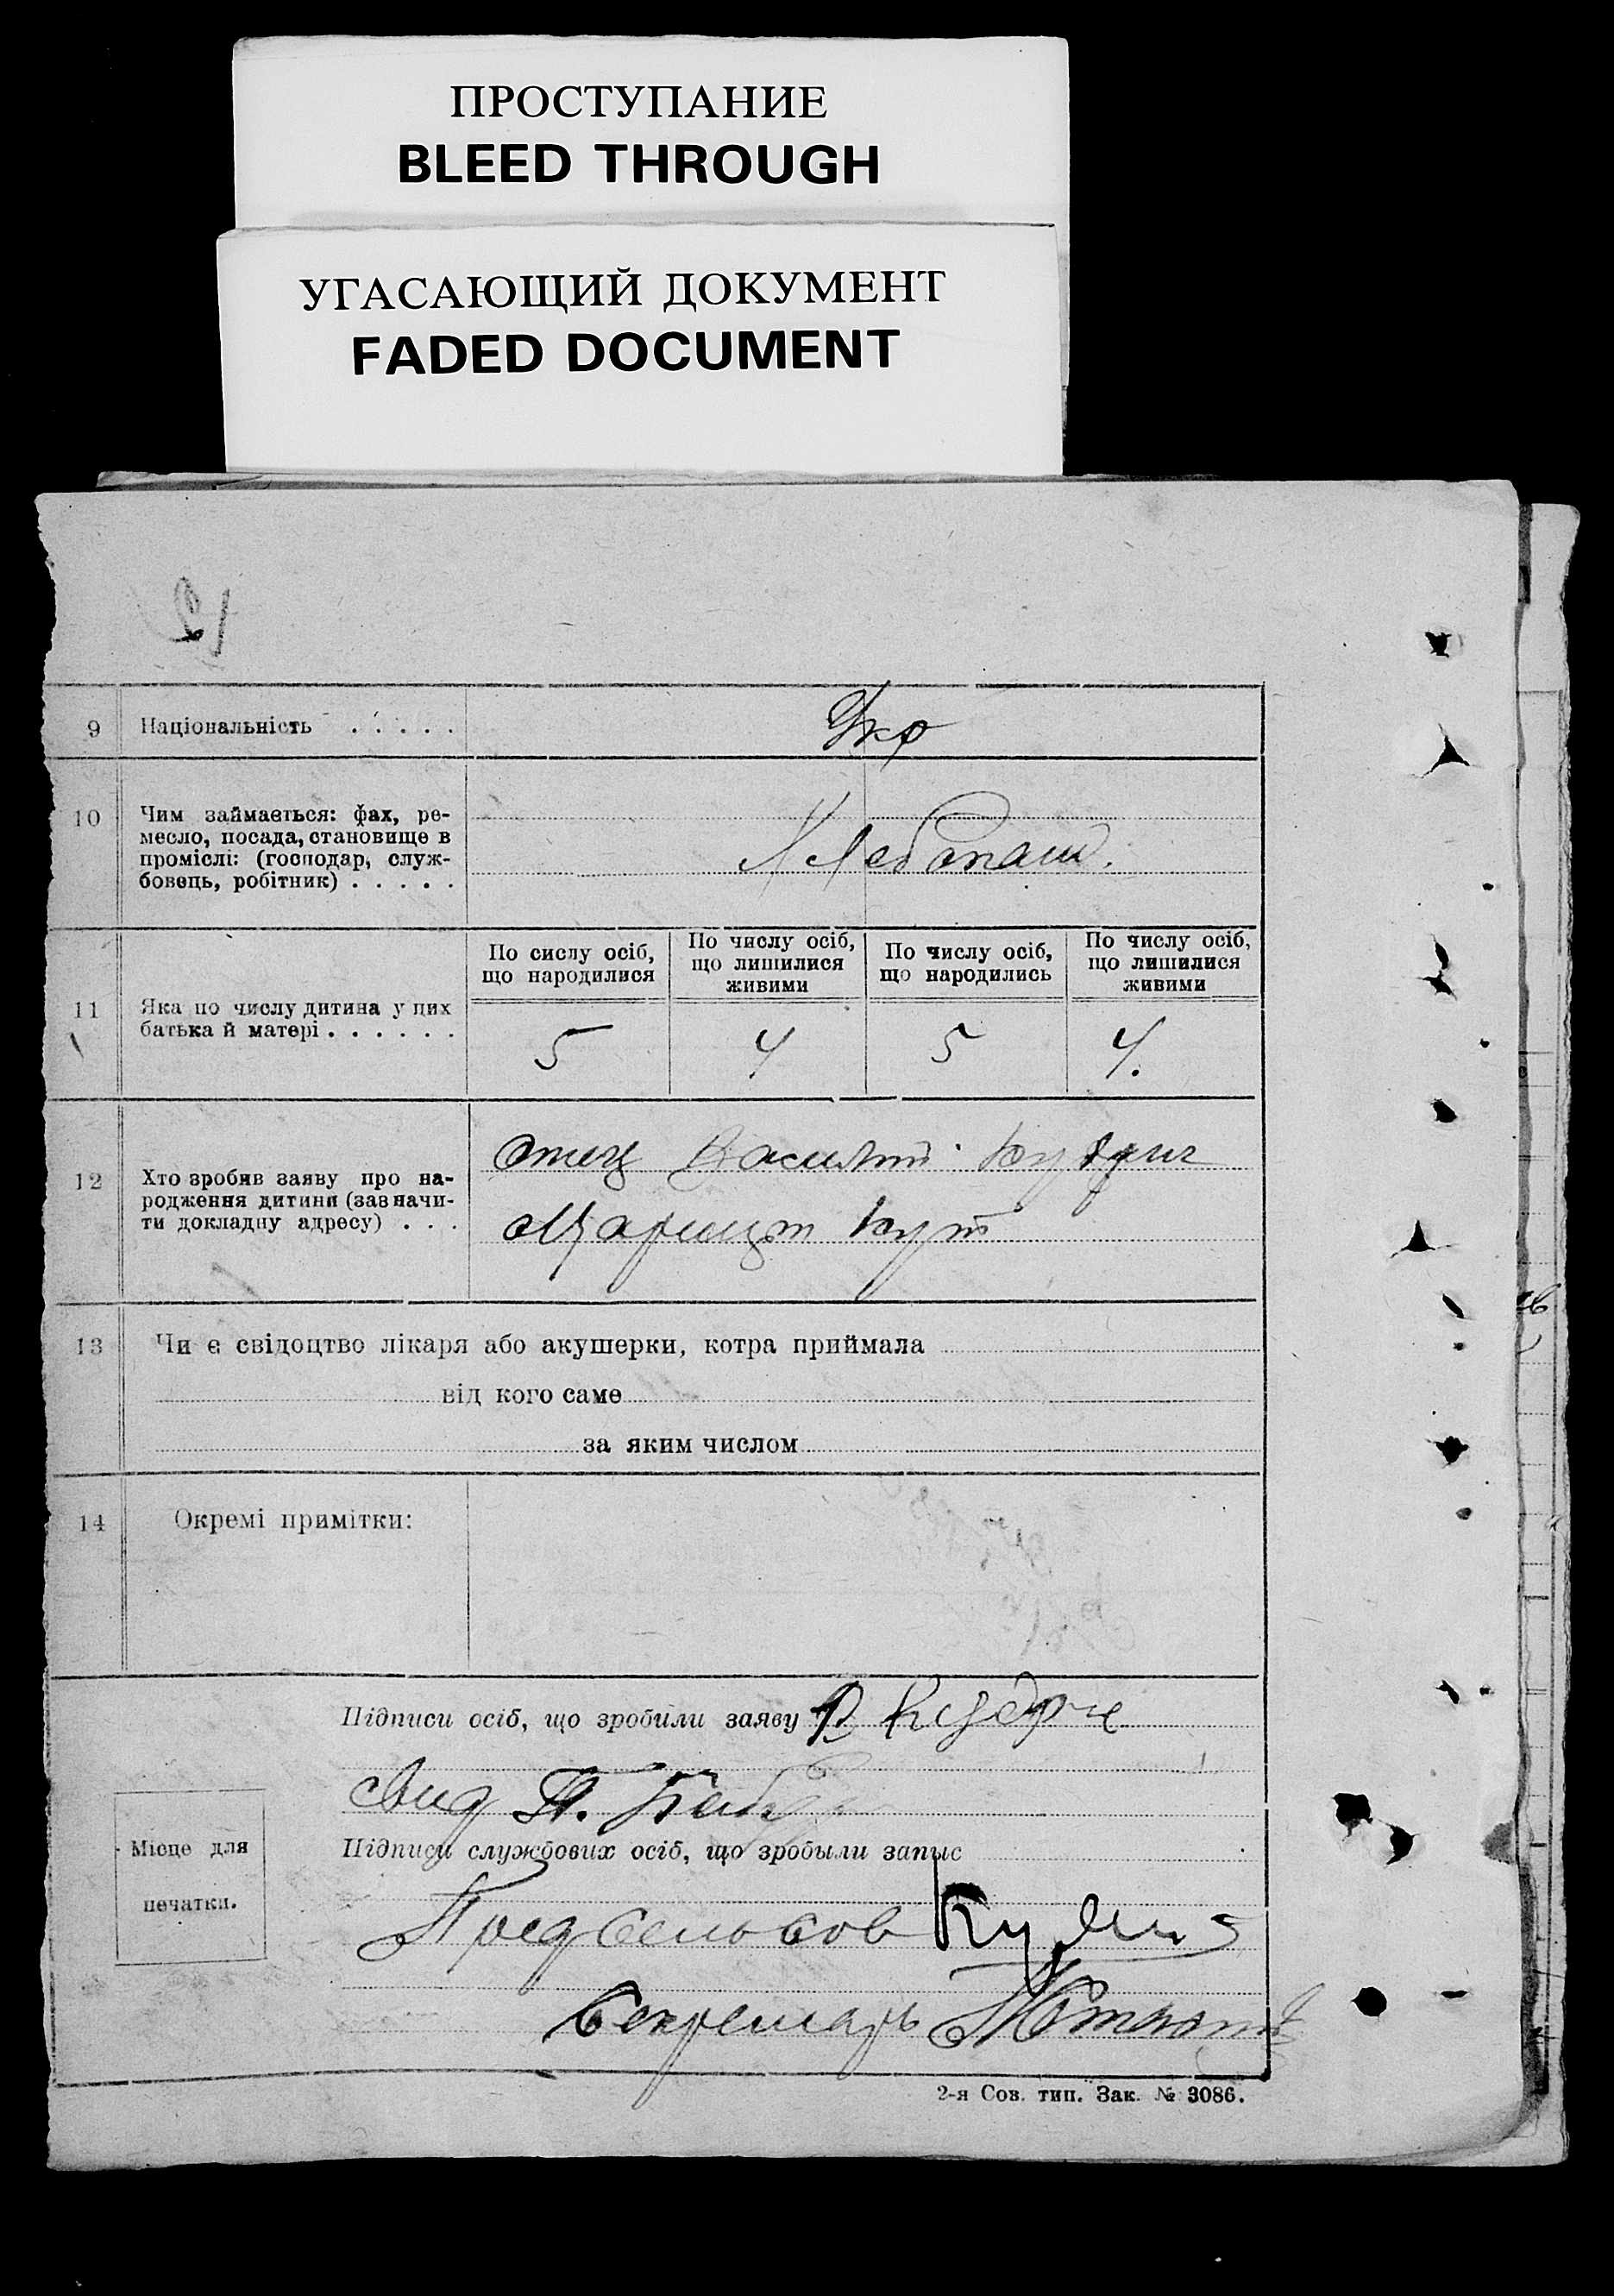 ПРОСТУПАНИЕ
BLEED THROUGH
УГАСАЮЩИЙ ДОКУМЕНТ
FADED DOCUMENT
9 Національність . . . . . Укр
10 Чим займається: фах, ре-
месло, посада, становище в
проміслі: (господар, служ-
бовець, робітник) . . . . . Хлебопаш.
По сислу осіб,
що народилися
По числу осіб,
що лишилися
живими
По числу осіб,
що народились
По числу осіб,
що лишилися
живими
11 Яка по числу дитина у цих
батька й матері . . . . . .
5 4 5 4.
12 Хто зробив заяву про на-
родження дитини (зазначи-
ти докладну адресу) . . .
Отец Василий
Кут
13 Чи є свідоцтво лікаря або акушерки, котра приймала
від кого саме
за яким числом
14 Окремі примітки:
Підписи осіб, що зробили заяву
Свид П.
Підписи службових осіб, що зробыли запыс
Місце для
печатки.
Предсельсов
Секретарь
2-я Сов. тип. Зак. № 3086.